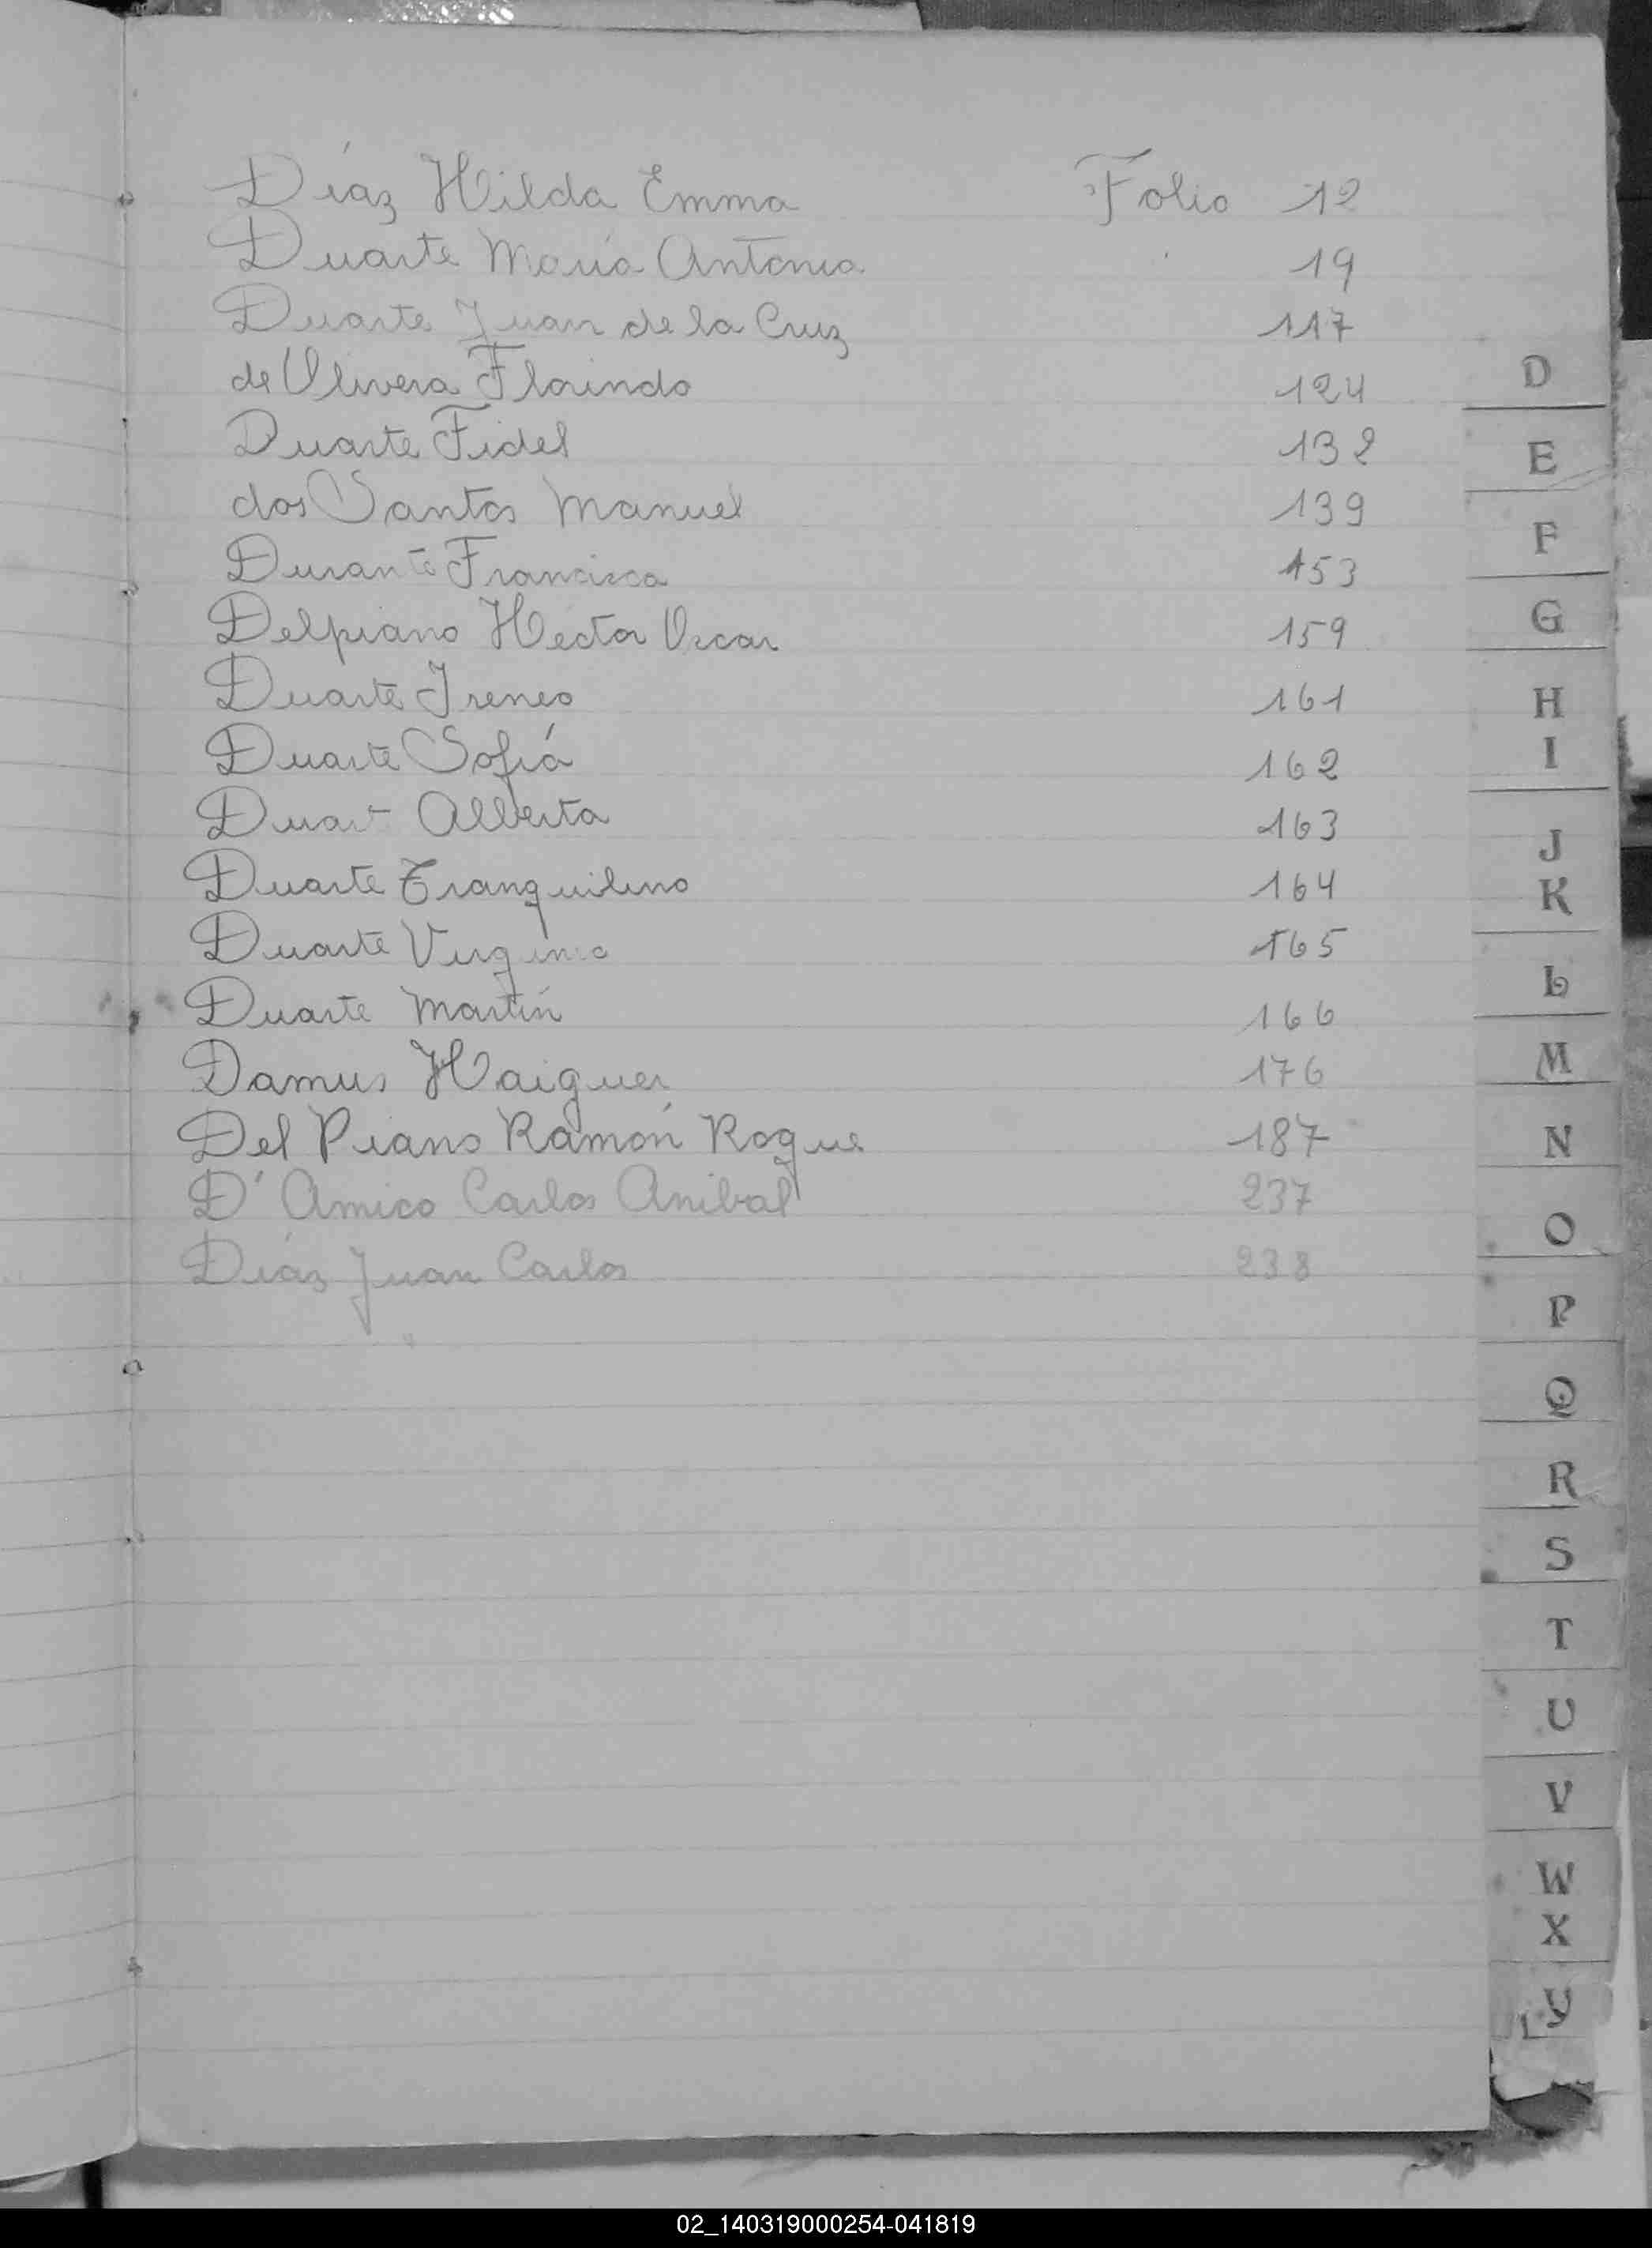 Díaz Hilda Emma Folio 12
Duarte María Antonia 19
Duarte Juan de la Cruz 117
de Olivera Florindo 124
Duarte Fidel 132
dos Santos Manuel 139
Durante Francisca 153
Delpiano Hector Oscar 159
Duarte Ireneo 161
Duarte Sofiá 162
Alberta 163
Duarte Tranquilino 164
Duarte Virginio 165
Duarte Martín 166
Damus Haiguer 176
Del Piano Ramón Roque 187
D' Amico Carlos Anibal 237
Díaz Juan Carlos 238
D
E
F
G
H
I
J
K
L
M
N
O
P
Q
R
S
T
U
V
W
X
Y
02_140319000254-041819